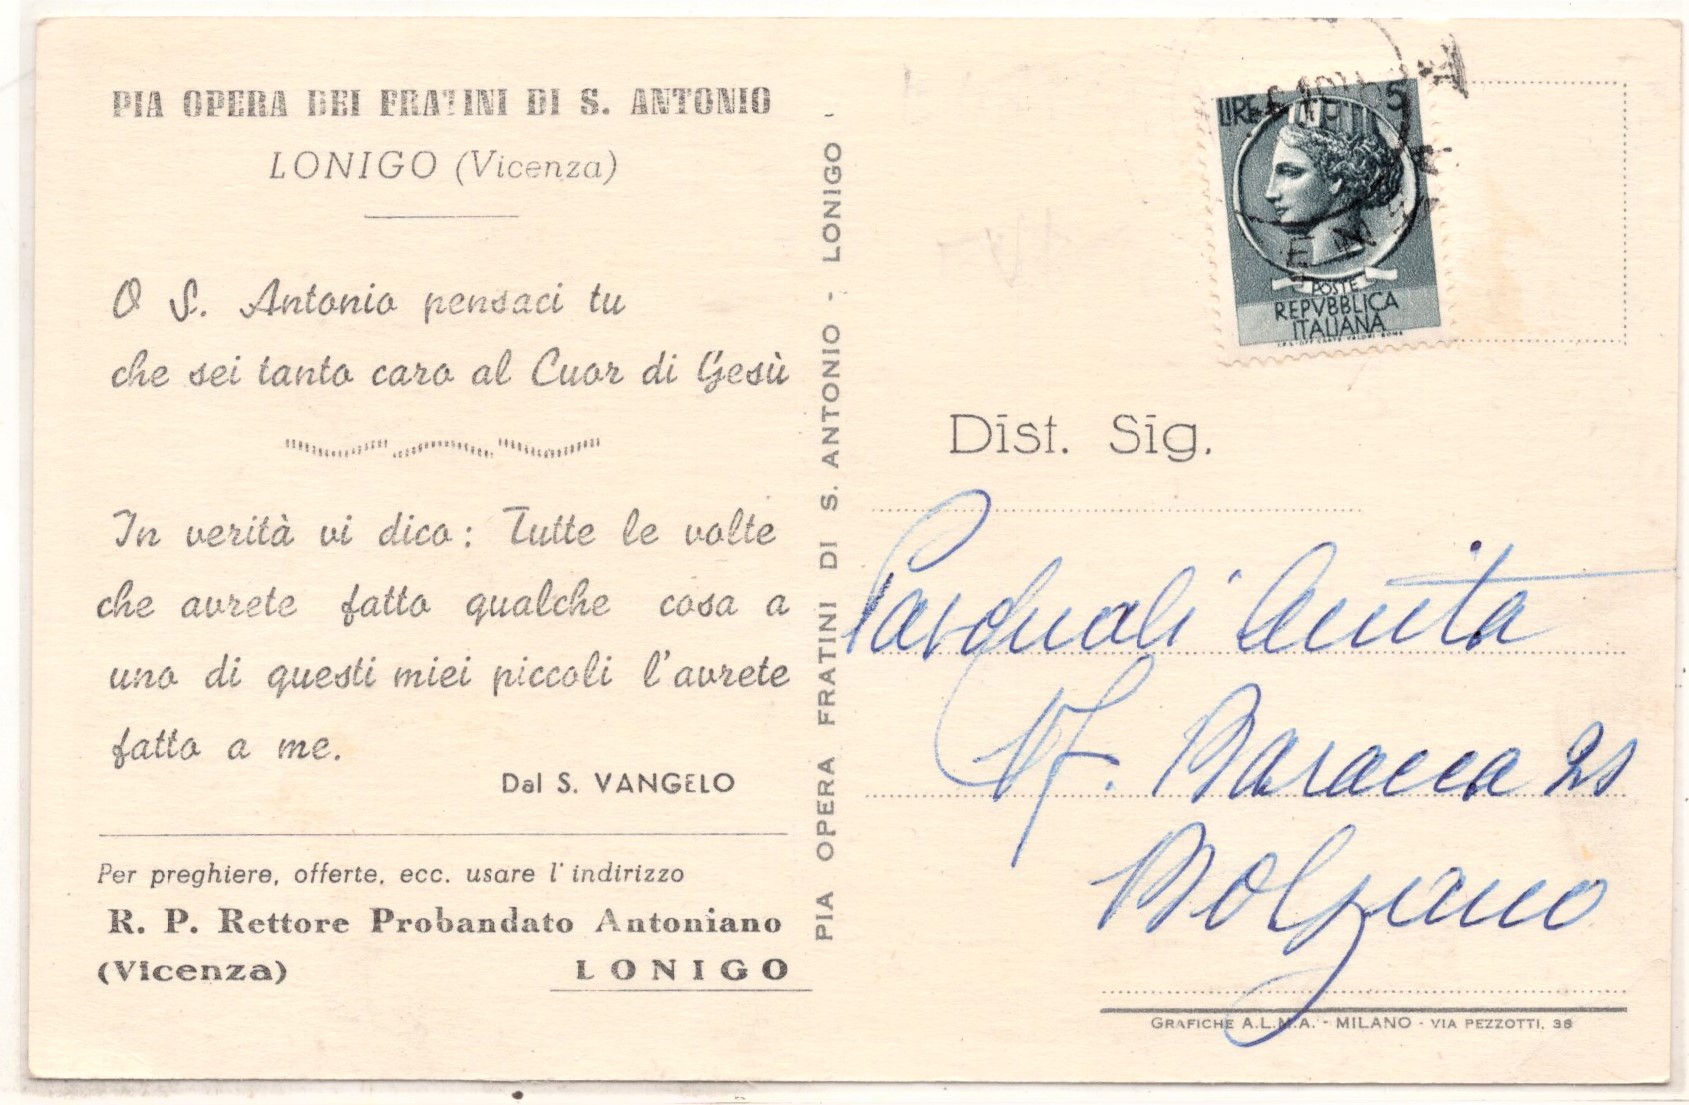 PIA OPERA DEI FRATINI DI S. ANTONIO
LONIGO (Vicenza)
O S. Antonio pensaci tu
che sei tanto caro al Cuor di Gesù
In verità vi dico: Tutte le volte
che avrete fatto qualche cosa a
uno di questi miei piccoli l'avrete
fatto a me.
Dal S. VANGELO
Per preghiere, offerte, ecc. usare l'indirizzo
R. P. Rettore Probandato Antoniano
(Vicenza) LONIGO
PIA OPERA FRATINI DI S. ANTONIO - LONIGO -
LIRE 5
POSTE
REPVBBLICA
ITALIANA
Dist. Sig.
Pasquali Anita
Baracca 21
Bolzano
GRAFICHE A.L.M.A. - MILANO - VIA PEZZOTTI, 38